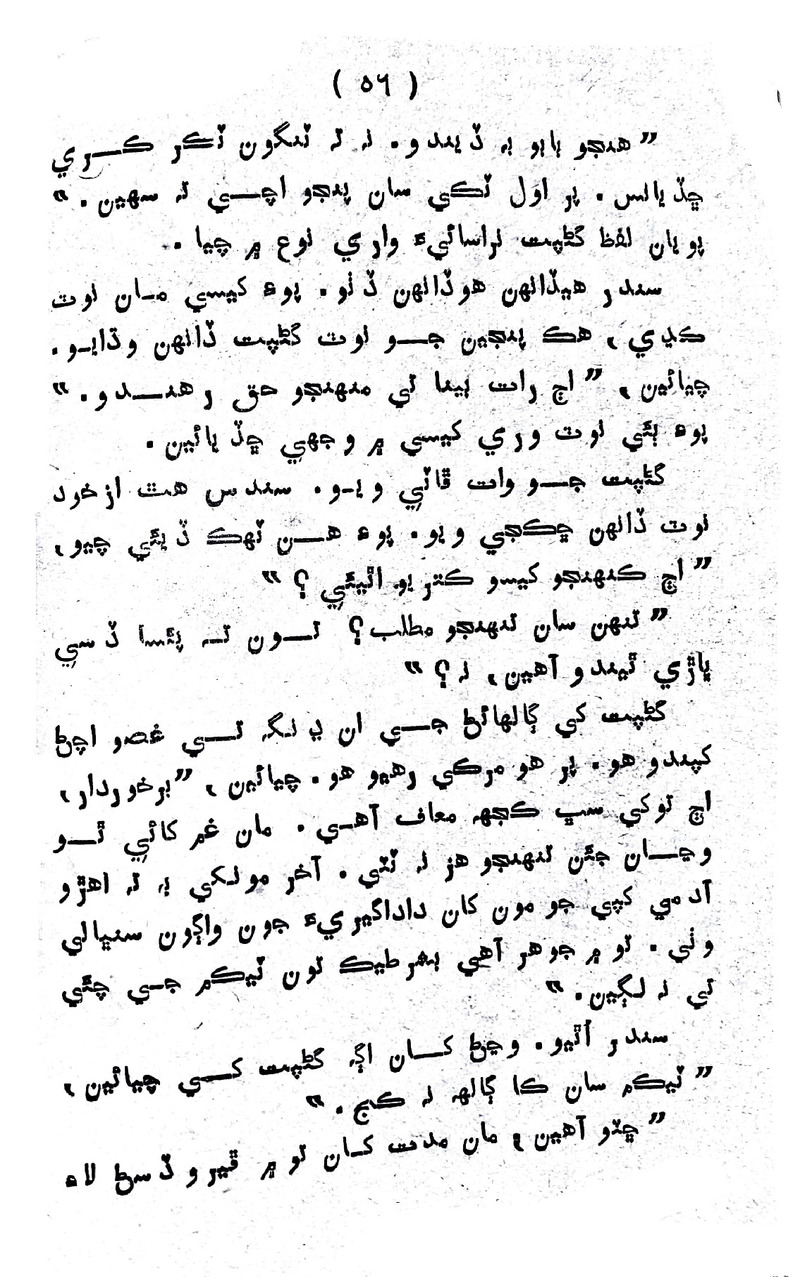 ( ٥٦ )
”هنجو ٻاٻو بہ ڏيندو. نہ تہ ٽنگون ٽڪر ڪري
ڇڏيانس. پر اول ٽڪي سان پنجو اچي تہ سهين.“
پويان لفظ گڻپت نراسائيءَ واري نوع ۾ چيا.
سندر هيڏانهن هوڏانهن ڏٺو. پوءِ کيسي مان نوٽ
ڪڍي، هڪ پنجين جو نوٽ گڻپت ڏانهن وڌايو.
چيائين، ”اڄ رات ٻيٽا تي منهنجو حق رهندو.“
پوءِ ٻئي نوٽ وري کيسي ۾ وجهي ڇڏيائين.
گڻپت جو وات ڦاٽي ويو. سندس هٿ ازخود
نوٽ ڏانهن ڇڪجي ويو. پوءِ هن ٽهڪ ڏيئي چيو،
”اڄ ڪنهنجو کيسو ڪتريو اٿيئي؟“
”تنهن سان تنهنجو مطلب؟ تون تہ پئسا ڏسي
ڀاڙي ٿيندو آهين، نہ؟“
گڻپت کي ڳالهائڻ جي ان ڍنگہ تي غصو اچڻ
کپندو هو. پر هو مرڪي رهيو هو. چيائين، ”برخوردار،
اڄ توکي سڀ ڪجهہ معاف آهي. مان غم کائي ٿو
وڃان جئن تنهنجو هز نہ ٽٽي. آخر مونکي بہ تہ اهڙو
آدمي کپي جو مون کان داداگيريءَ جون واڳون سنڀالي
وٺي. تو ۾ جوهر آهي بشرطيڪ تون ٽيڪم جي چئي
تي نہ لڳين.“
سندر اُٿيو. وڃڻ کان اڳہ گڻپت کي چيائين،
”ٽيڪم سان ڪا ڳالهہ نہ ڪج.“
”چٽو آهين، مان مدت کان تو ۾ ڦيرو ڏسڻ لاءِ